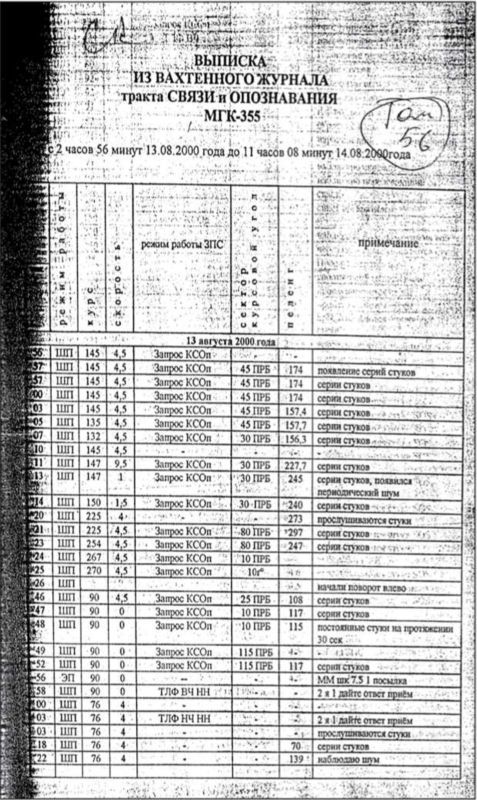 ВЫПИСКА
ИЗ ВАХТЕННОГО ЖУРНАЛА
тракта СВЯЗИ и ОПОЗНАВАНИЯ
МГК-355
Том
56
с 2 часов 56 минут 13.08.2000 года до 11 часов 08 минут 14.08.2000года
режим работы курс скорость режим работы ЗПС сектор курсовой угол пеленг примечание
13 августа 2000 года
56 ШП 145 4,5 Запрос КСОп - - -
57 ШП 145 4,5 Запрос КСОп 45 ПРБ 174 появление серий стуков
57 ШП 145 4,5 Запрос КСОп 45 ПРБ 174 серии стуков
00 ШП 145 4,5 Запрос КСОп 45 ПРБ 174 серии стуков
03 ШП 145 4,5 Запрос КСОп 45 ПРБ 157,4 серии стуков
05 ШП 135 4,5 Запрос КСОп 45 ПРБ 157,7 серии стуков
07 ШП 132 4,5 Запрос КСОп 30 ПРБ 156,3 серии стуков
10 ШП 145 4,5 - - - -
11 ШП 147 9,5 Запрос КСОп 30 ПРБ 227,7 серии стуков
13 ШП 147 1 Запрос КСОп 30 ПРБ 245 серии стуков, появился
периодический шум
14 ШП 150 1,5 Запрос КСОп 30 ПРБ 240 серии стуков
20 ШП 225 4 - - 273 прослушиваются стуки
21 ШП 225 4,5 Запрос КСОп 80 ПРБ 297 серии стуков
23 ШП 254 4,5 Запрос КСОп 80 ПРБ 247 серии стуков
24 ШП 267 4,5 Запрос КСОп 10 ПРБ
25 ШП 270 4,5 Запрос КСОп
26 ШП начали поворот влево
46 ШП 90 4,5 Запрос КСОп 25 ПРБ 108 серии стуков
47 ШП 90 0 Запрос КСОп 10 ПРБ 117 серии стуков
48 ШП 90 0 Запрос КСОп 10 ПРБ 115 постоянные стуки на протяжении
30 сек
49 ШП 90 0 Запрос КСОп 115 ПРБ - -
52 ШП 90 0 Запрос КСОп 115 ПРБ 117 серии стуков
56 ЭП 90 0 - - - ММ шк 7.5 1 посылка
58 ШП 90 0 ТЛФ ВЧ НН - - 2 я 1 дайте ответ приём
00 ШП 76 4 - - - -
03 ШП 76 4 ТЛФ НЧ НН - - 2 я 1 дайте ответ приём
03 ШП 76 4 - - - прослушиваются стуки
18 ШП 76 4 70 серии стуков
22 ШП 76 4 139 наблюдаю шум